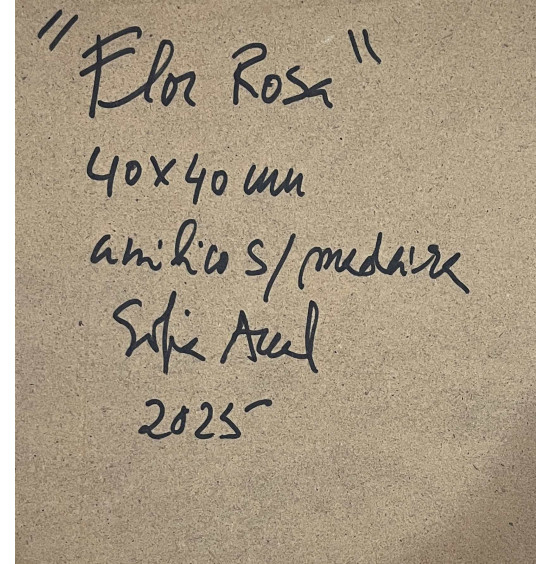 "Flor Rosa"
40x40 mm
acrílico s/ madeira
Sofia Areal
2025